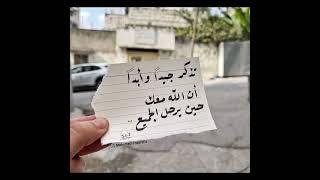 تذكر جيداً وأبداً
أن الله معك
حين يرحل الجميع ..